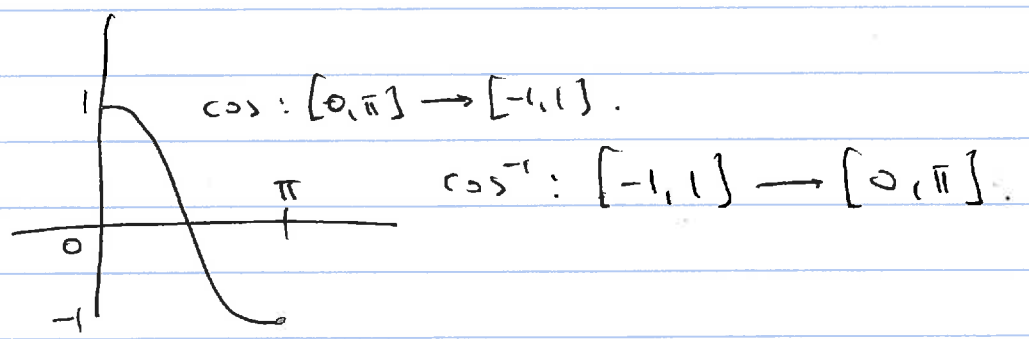 1
cos : [0, π] → [-1, 1].
cos⁻¹ : [-1, 1] → [0, π].
π
0
-1